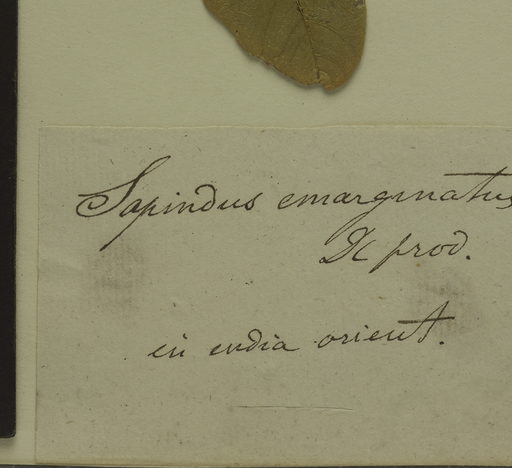 Sapindus emarginatus
DC prod.
in india orient.